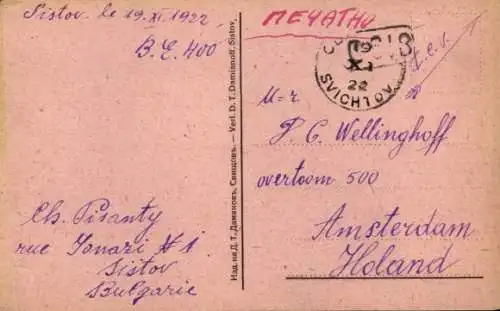 Sistov. le 19.XI.1922
B.E.400
Ch. Pisanty
rue Jonari #1
Sistov
Bulgarie
Изд. на Д. Т. Дамяновъ, Свищовъ. — Verl. D. T. Damianoff, Sistov.
ПЕЧАТНО
XI
22
SVICHTOV
M-r
P. C. Wellinghoff
overtoom 500
Amsterdam
Holand